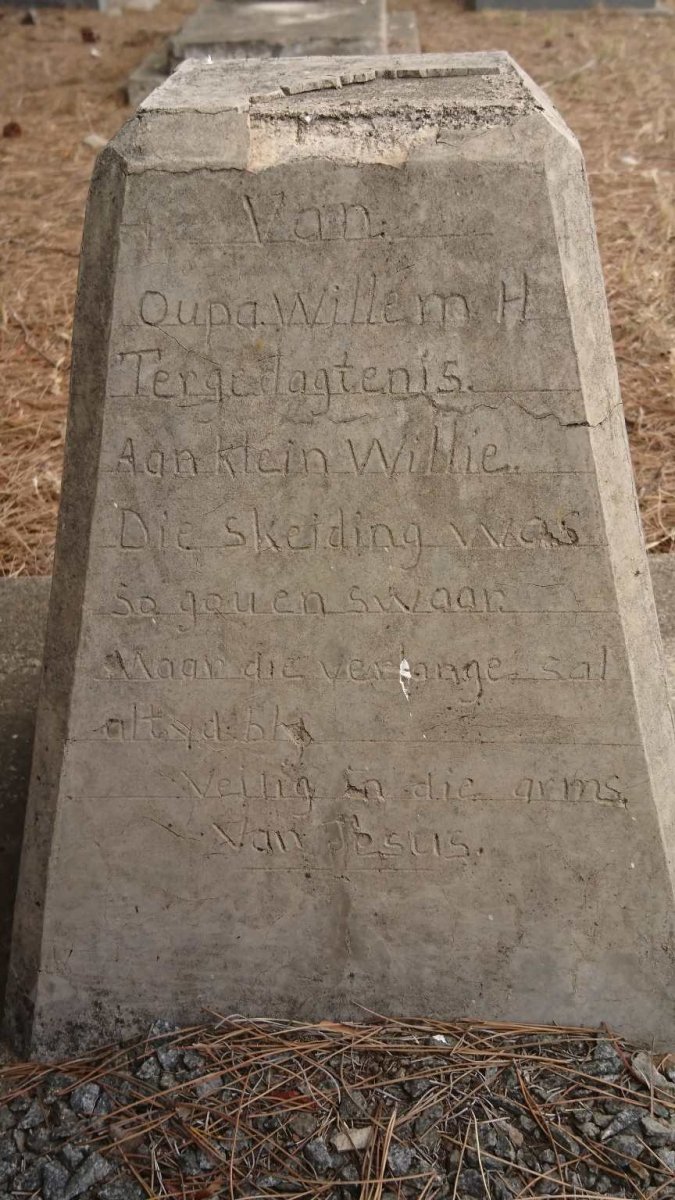 Van.
Oupa Willem H
Tergedagtenis.
Aan klein Willie.
Die skeiding was
so gou en swaar.
Maar die verlange sal
altyd bly
veilig in die arms.
Van Jesus.